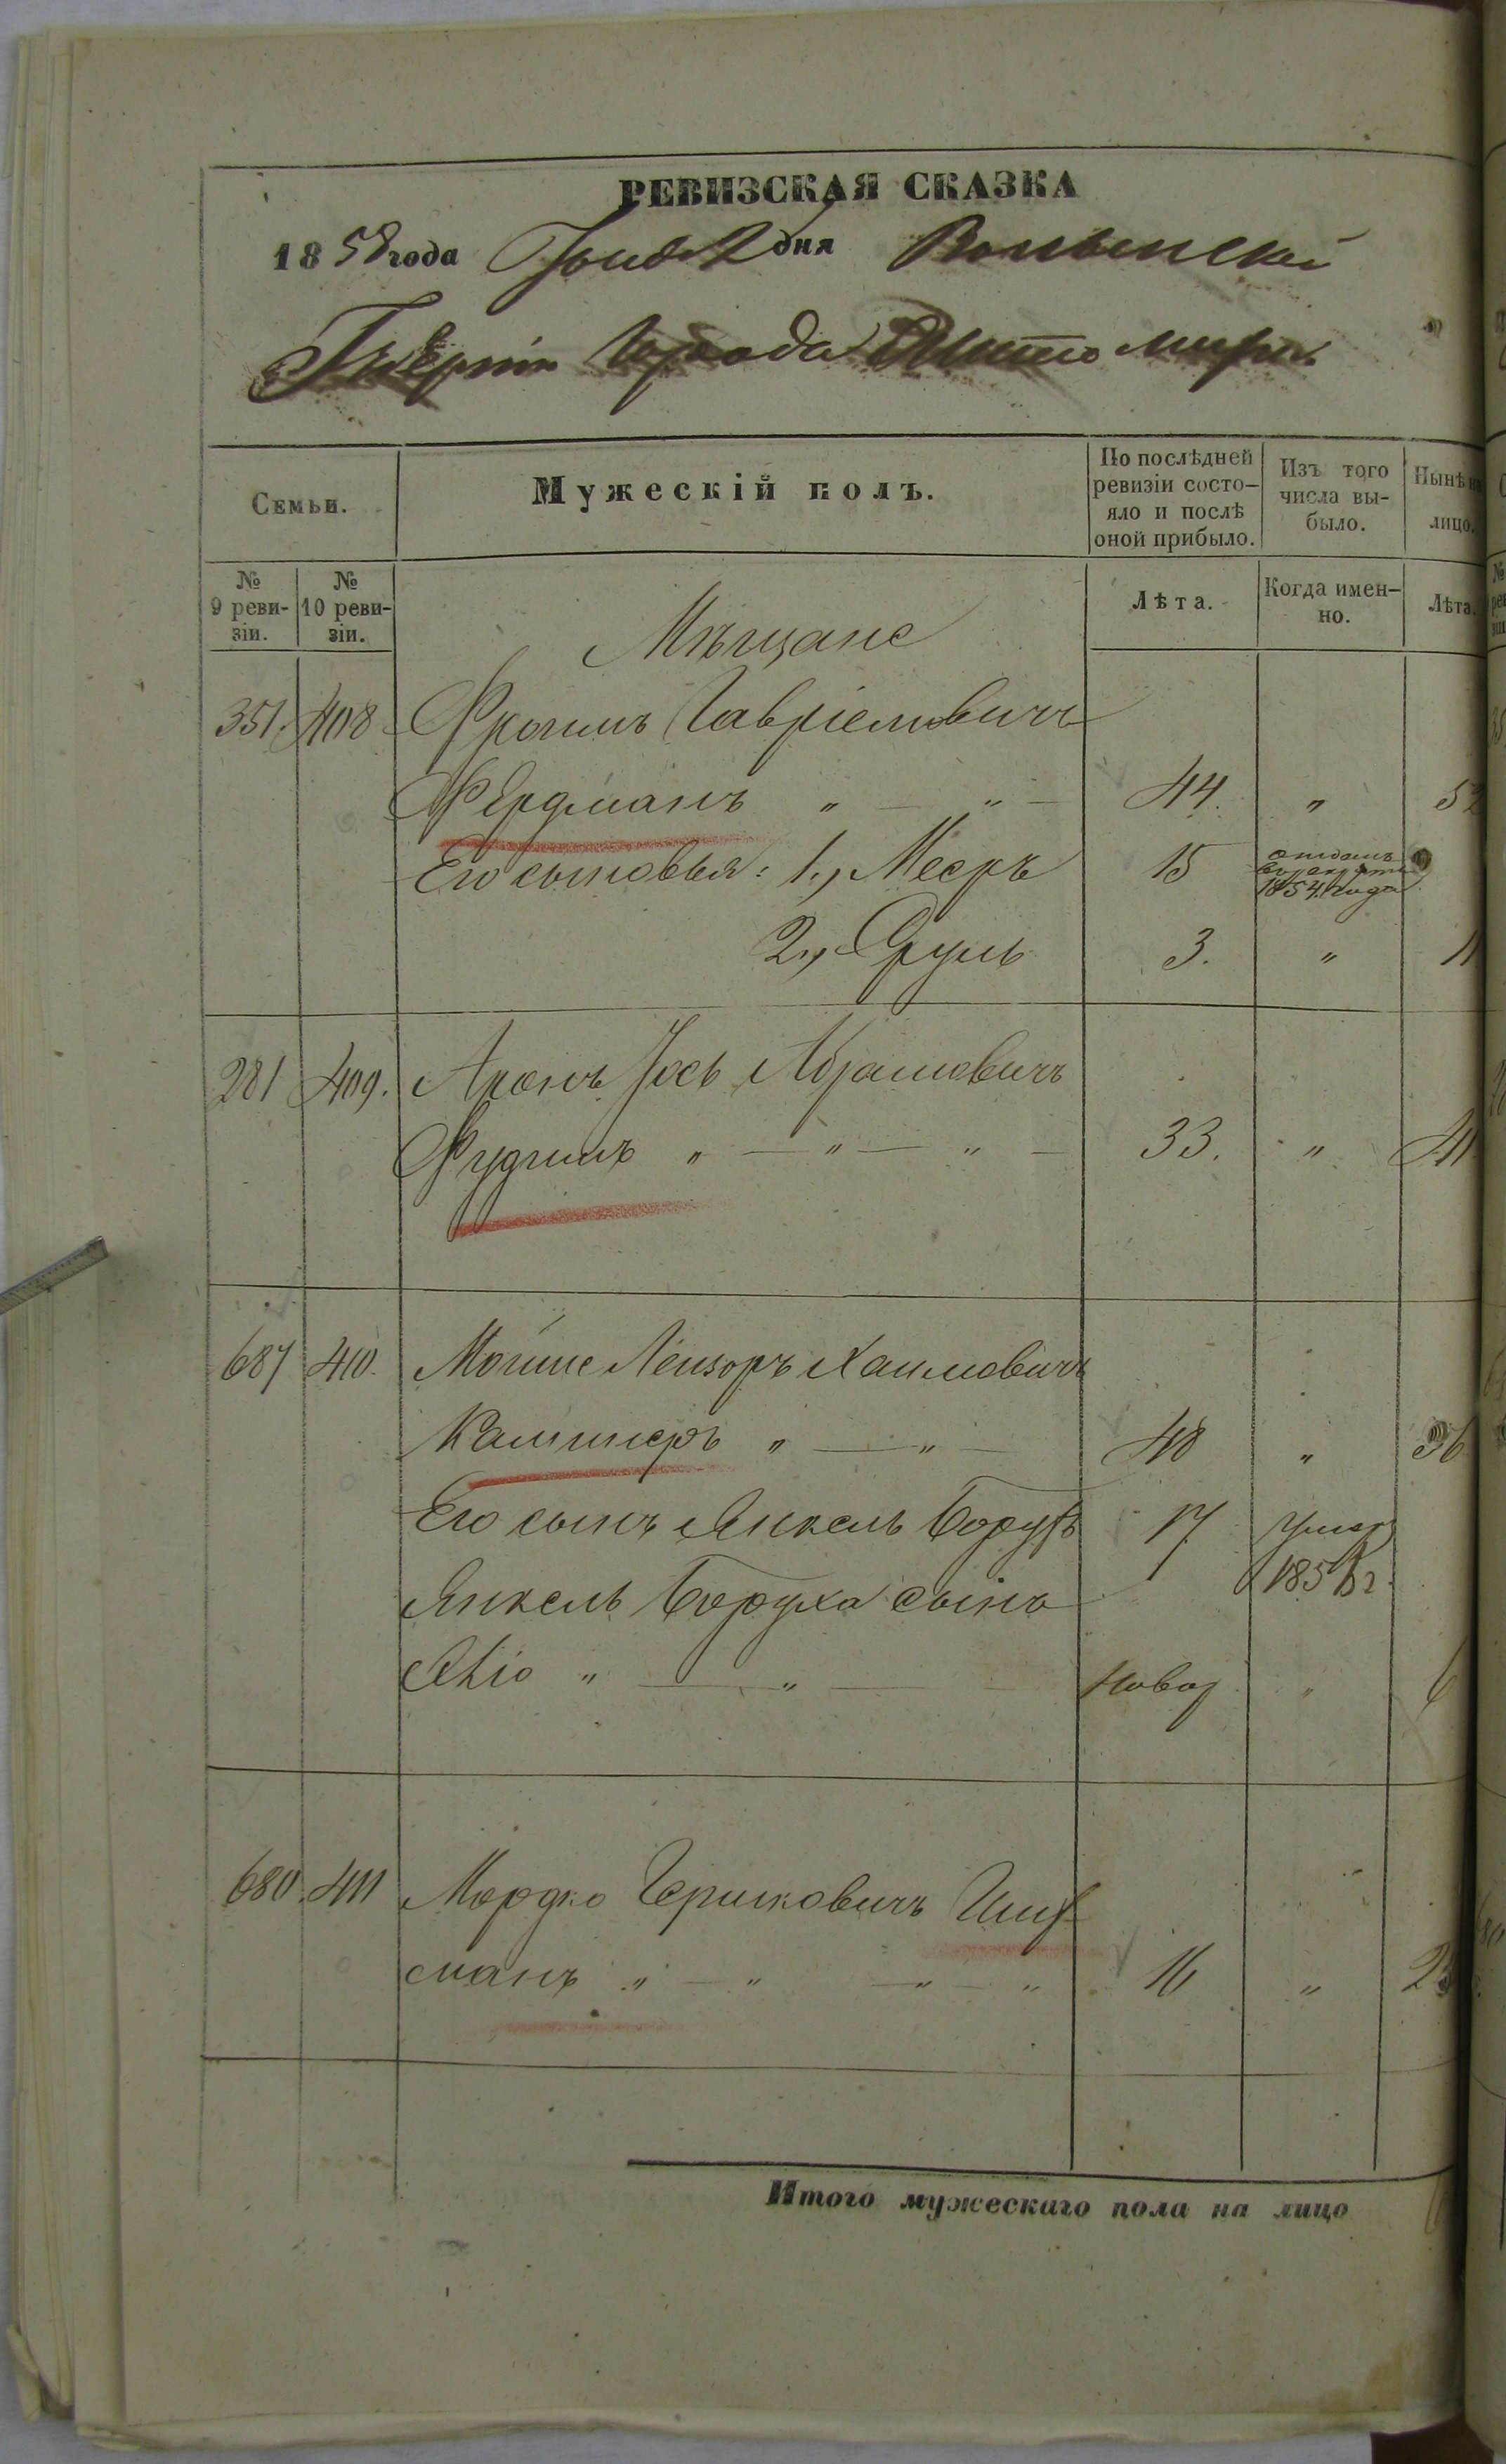 РЕВИЗСКАЯ СКАЗКА
1858 года Июня дня Волынской
Губерніи Города Житомира
Семьи.
Мужескій полъ.
По послѣдней ревизіи состо-
яло и послѣ
оной прибыло.
Изъ того
числа вы-
было.
Нынѣ на
лицо.
№
9 реви-
зіи.
№
10 реви-
зіи.
Лѣта.
Когда имен-
но.
Лѣта.
Мѣщане
351. 408 Фроимъ Гавріеловичъ
Фердманъ " — " — 44. " 52
Его сыновья: 1., Мееръ 15 отданъ
въ рекруты
1854 года
2., Сруль 3. " 11
281 409. Аронъ Іось Абрамовичъ
" — " — " — 33. " 41
687 410. Мошко Лейзоръ Хаимовичъ
" — " — 48 " 56
Его сынъ Янкель Борухъ 17 умер
185 г.
Янкель Боруха сынъ
" — " — новор "
680. 411 Мордко Гершковичъ
манъ " — " — " — " 16 "
Итого мужескаго пола на лицо